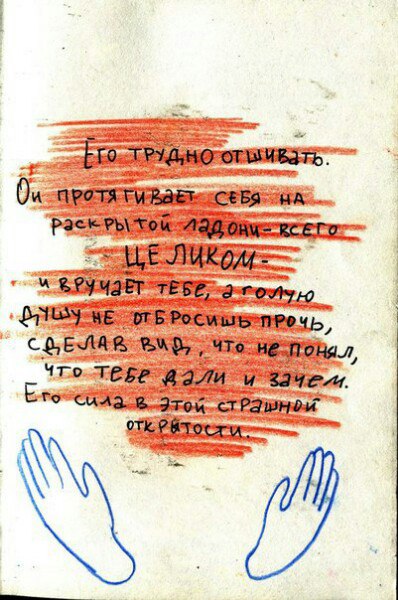 Его трудно отшивать.
Он протягивает себя на
раскрытой ладони - всего
ЦЕЛИКОМ -
и вручает тебе, а голую
душу не отбросишь прочь,
сделав вид, что не понял,
что тебе дали и зачем.
Его сила в этой страшной
открытости.